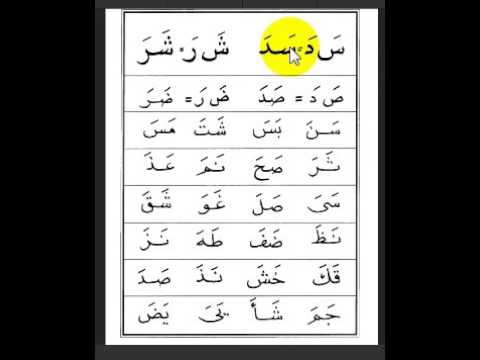 سَ دَ = سَدَ شَ رَ = شَرَ
صَ دَ = صَدَ ضَ رَ = ضَرَ
سَنَ بَسَ شَتَ هَسَ
ثَرَ صَحَ نَمَ عَذَ
سَىَ صَلَ غَوَ شَقَ
نَظَ ضَفَ طَهَ نَزَ
قَكَ خَشَ نَذَ صَدَ
جَمَ شَأَ يَىَ يَضَ